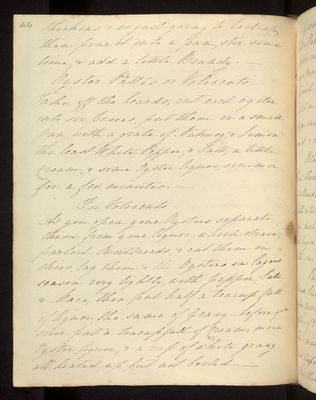 44
thickens & is just going to boil off,
then pour it into a pan, stir some
time, & add a little Brandy. —
Oyster Pattie's or Volevents
Take off the beards, cut each oyster
into six pieces, put them in a small
pan, with a grate of Nutmeg, & Lemon
the least White Pepper, & Salt, a little
Cream, & some Oyster liquor, simmer
for a few minutes. —
For Volevents
As you open your Oysters separate
them from your liquor, which strain,
parboil Sweetbreads, & cut them in
slices, lay them & the Oysters in layers
season very lightly, with pepper, Salt
& Mace, then put half a teacup full
of liquor, the same of gravy before you
serve put a teacup full of Cream, more
Oyster liquor, & a cup of white gravy
all heated up, but not boiled. —